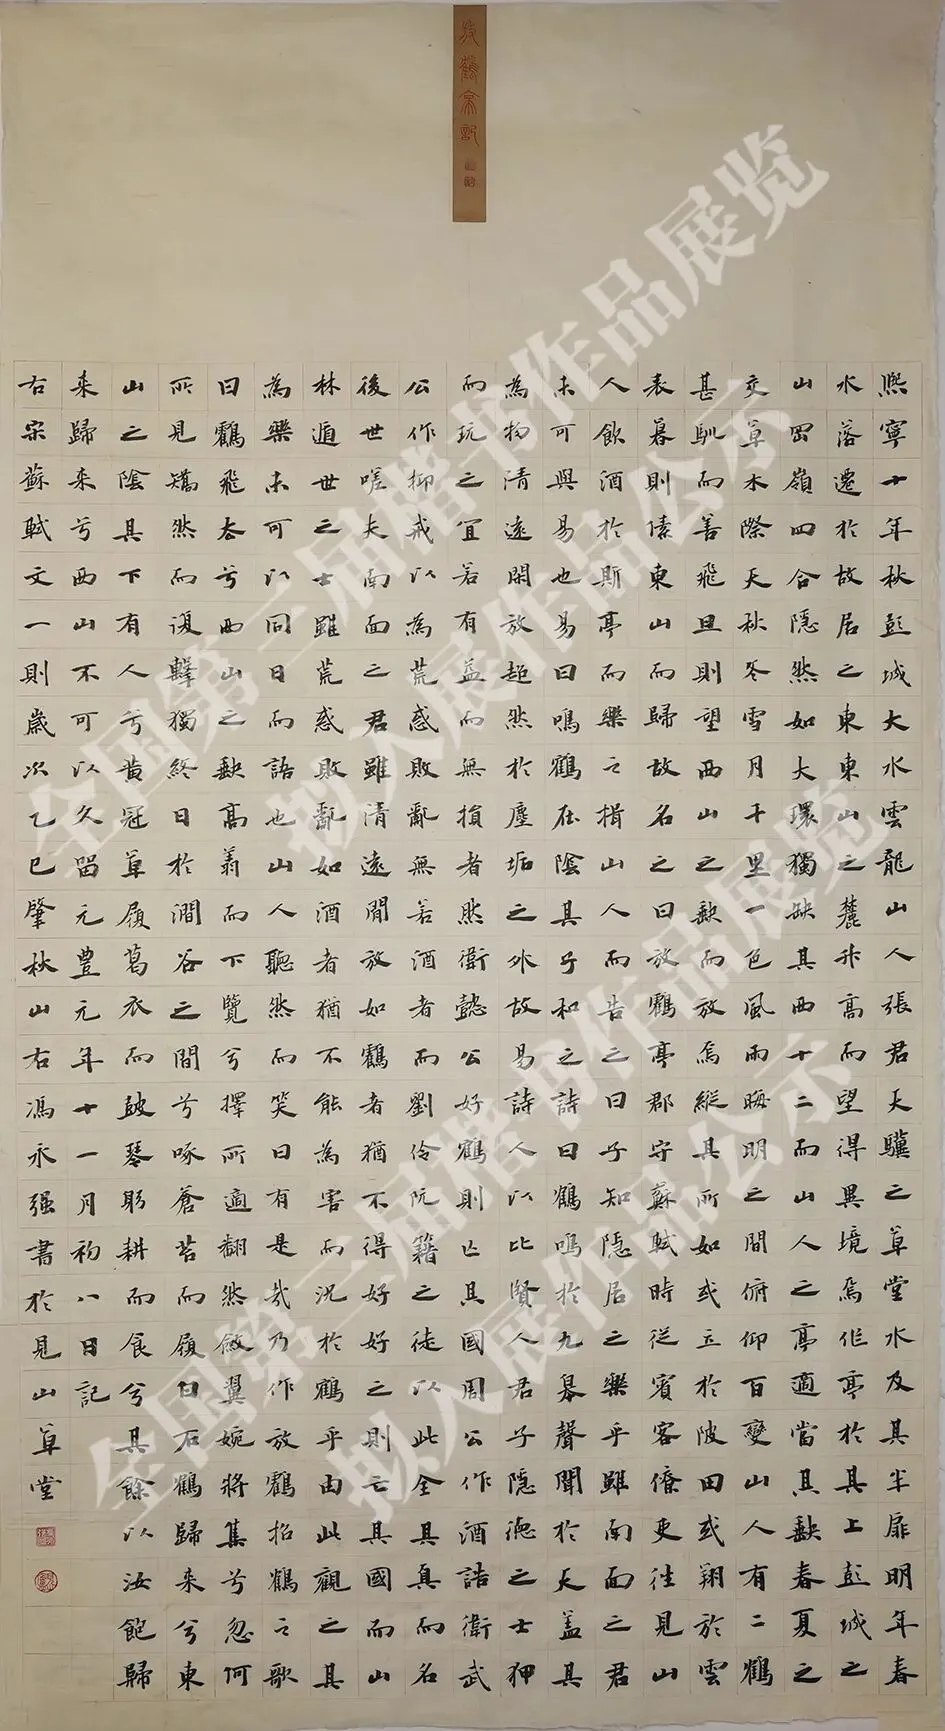 放鶴亭記
熙寧十年秋彭城大水雲龍山人張君天驥之草堂水及其半扉明年春
水落遷於故居之東東山之麓升高而望得異境焉作亭於其上彭城之
山岡嶺四合隱然如大環獨缺其西十二而山人之亭適當其缺春夏之
交草木際天秋冬雪月千里一色風雨晦明之間俯仰百變山人有二鶴
甚馴而善飛旦則望西山之缺而放焉縱其所如或立於陂田或翔於雲
表暮則傃東山而歸故名之曰放鶴亭郡守蘇軾時從賓客僚吏往見山
人飲酒於斯亭而樂之揖山人而告之曰子知隱居之樂乎雖南面之君
未可與易也易曰鳴鶴在陰其子和之詩曰鶴鳴於九皋聲聞於天蓋其
為物清遠閑放超然於塵垢之外故易詩人以比賢人君子隱德之士狎
而玩之宜若有益而無損者然衛懿公好鶴則亡其國周公作酒誥衛武
公作抑戒以為荒惑敗亂無若酒者而劉伶阮籍之徒以此全其真而名
後世嗟夫南面之君雖清遠閒放如鶴者猶不得好好之則亡其國而山
林遁世之士雖荒惑敗亂如酒者猶不能為害而況於鶴乎由此觀之其
為樂未可以同日而語也山人聽然而笑曰有是哉乃作放鶴招鶴之歌
曰鶴飛去兮西山之缺高翥而下覽兮擇所適翻然斂翼婉將集兮忽何
所見矯然而復擊獨終日於澗谷之間兮啄蒼苔而履白石鶴歸來兮東
山之陰其下有人兮黃冠草履葛衣而鼓琴躬耕而食兮其餘以汝飽歸
來歸來兮西山不可以久留元豐元年十一月初八日記
右宋蘇軾文一則歲次乙巳肇秋山右馮永强書於見山草堂
全国第三届楷书作品展览
拟入展作品公示
全国第三届楷书作品展览
拟入展作品公示